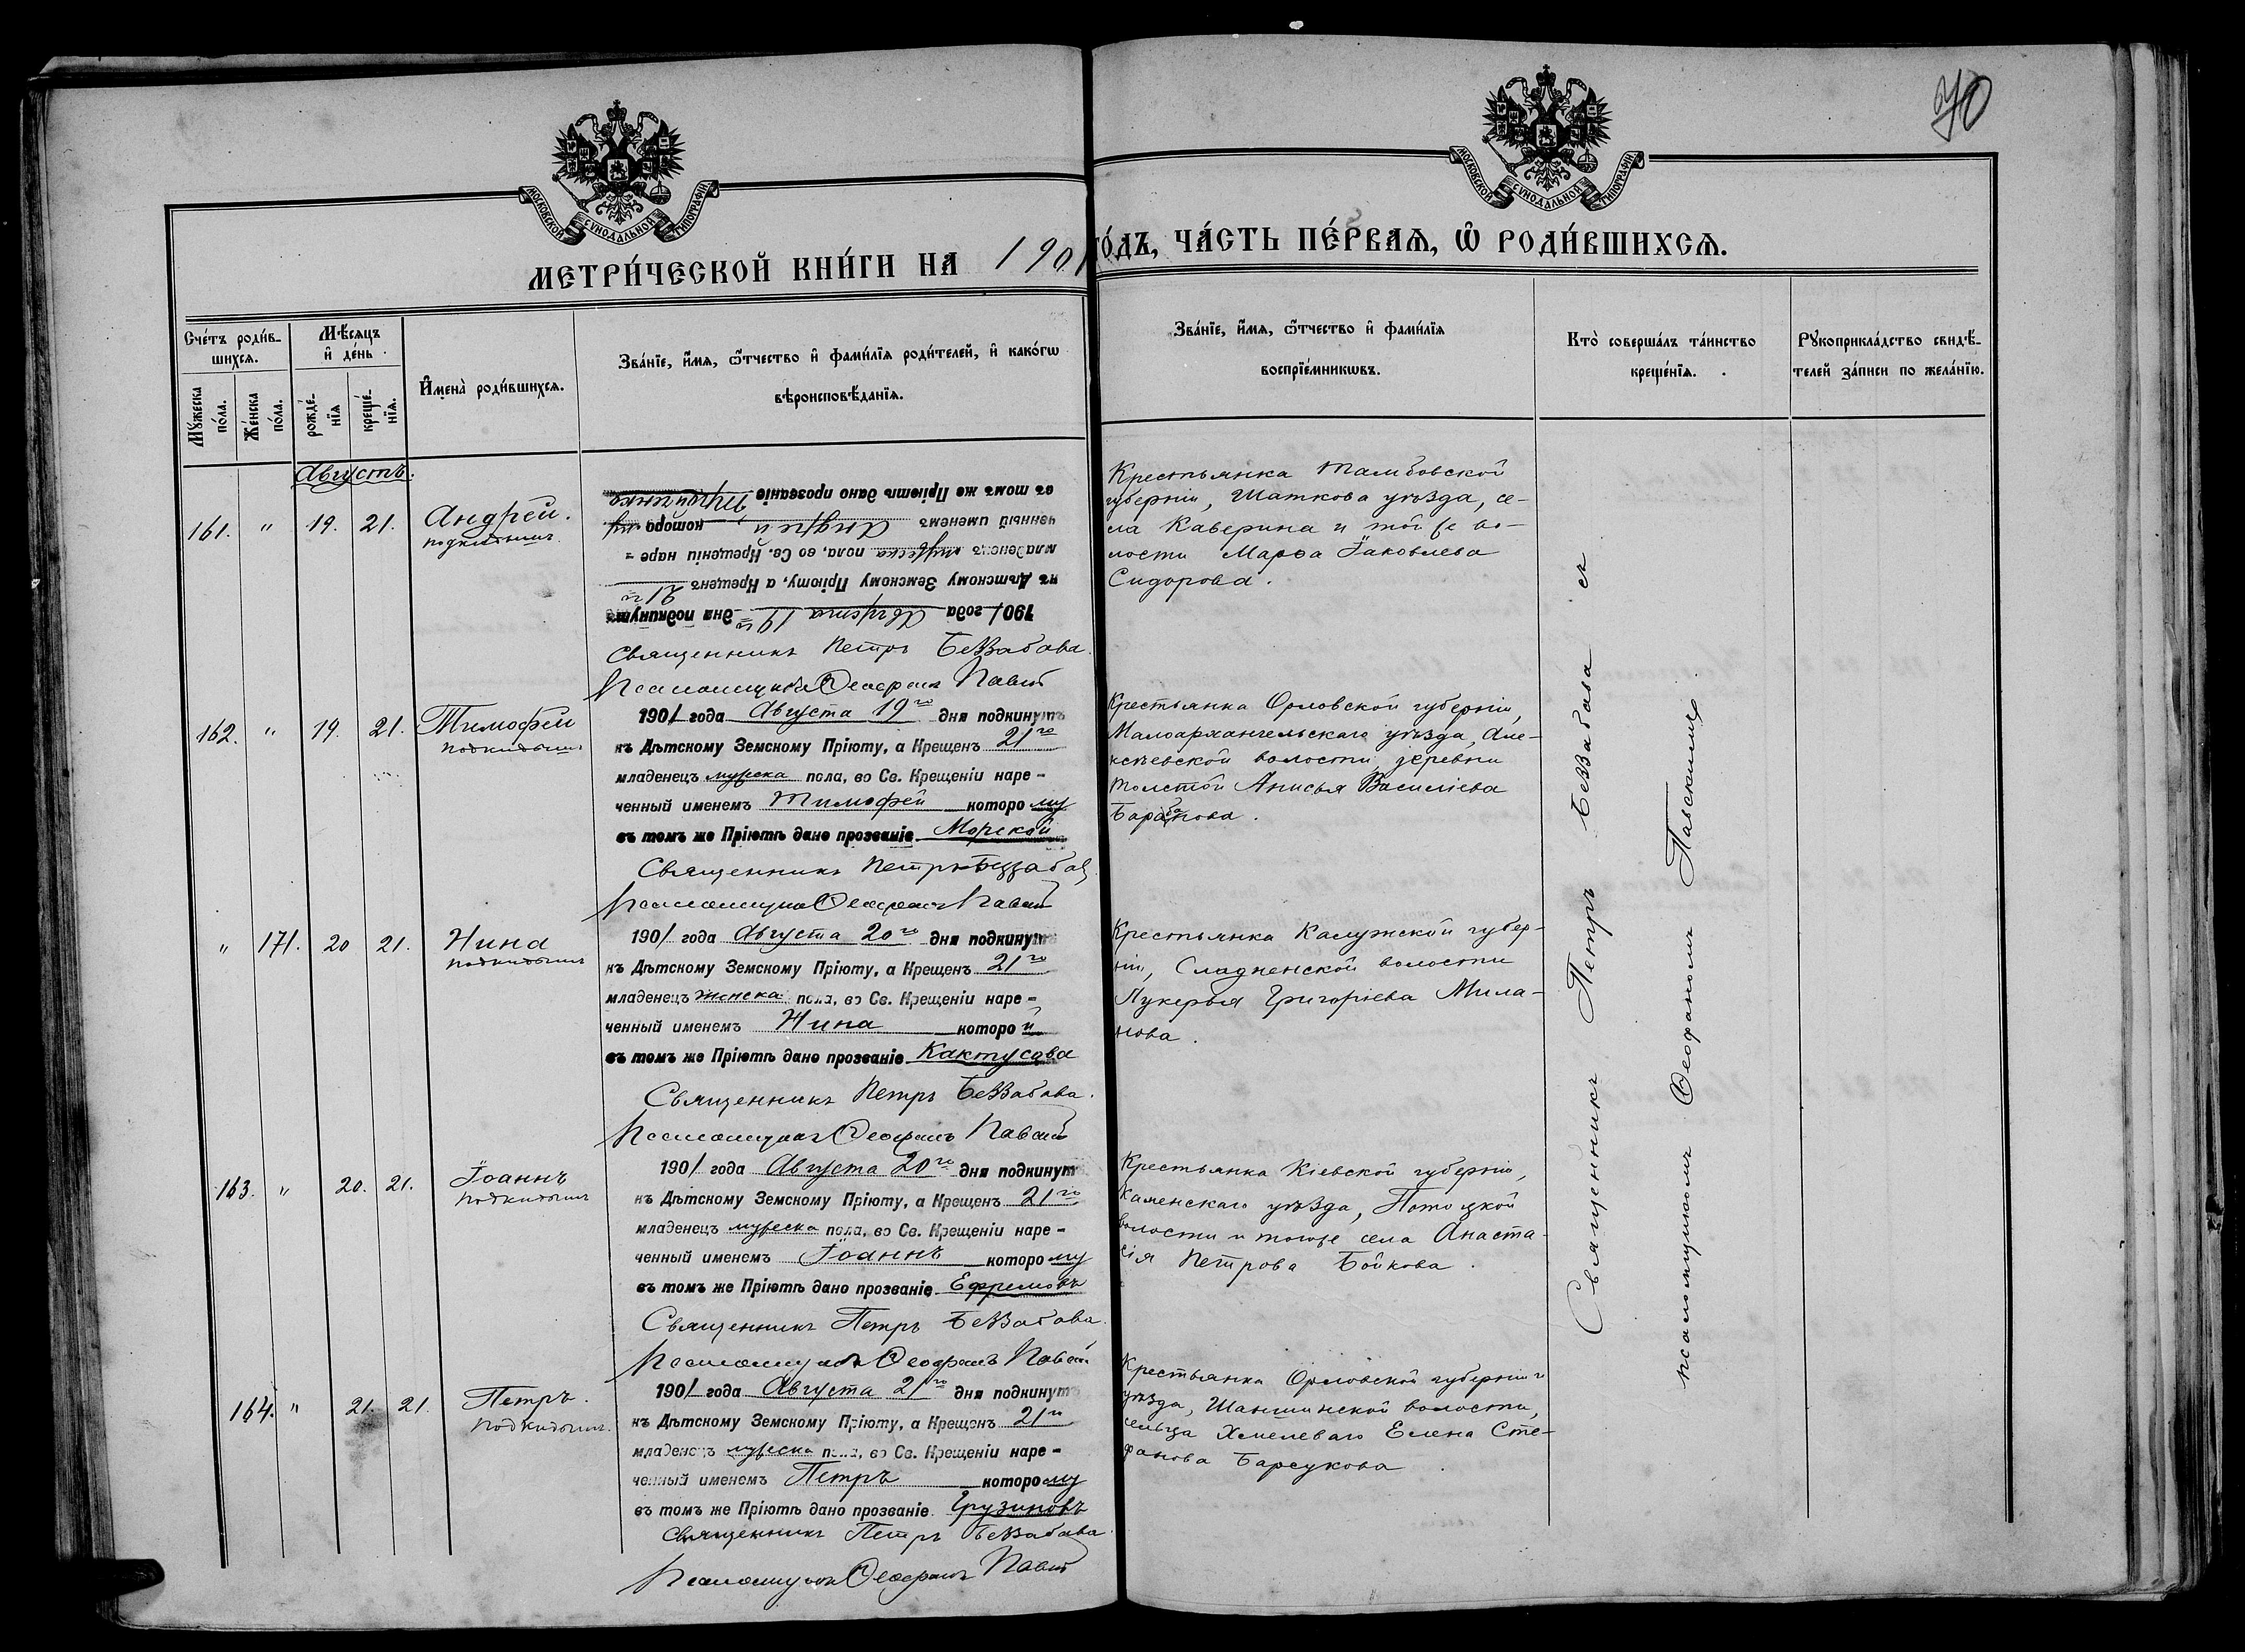 70
МОСКОВСКОЙ СѴНОДАЛЬНОЙ ТИПОГРАФІИ
МОСКОВСКОЙ СѴНОДАЛЬНОЙ ТИПОГРАФІИ
МЕТРИ́ЧЕСКОЙ КНИ́ГИ НА 1901
ГО́ДЪ, ЧА́СТЬ ПЕ́РВАѦ, Ѡ҆ РОДИ́ВШИХСѦ.
Сче́тъ роди́в-
шихсѧ.
Мꙋжеска по́ла.
Же́нска по́ла.
Мѣ́сѧцъ
и҆ де́нь.
рожде́-нїѧ
креще́-нїѧ.
И҆мена̀ роди́вшихсѧ.
Зва́нїе, и҆́мѧ, ѻ҆́тчество и҆ фами́лїѧ роди́телей, и҆ како́гѡ
вѣроисповѣ́данїѧ.
Зва́нїе, и҆́мѧ, ѻ҆́тчество и҆ фами́лїѧ
воспрїе́мникѡвъ.
Кто̀ соверша́лъ та́инство
креще́нїѧ.
Рꙋкоприкла́дство свидѣ́-
телей за́писи по жела́нїю.
Августъ.
161. " 19. 21. Андрей.
подкидышъ
1901 года Августа 19го дня подкинутъ
къ Дѣтскому Земскому Пріюту, а Крещенъ 21го
младенецъ мужеска пола, во Св. Крещеніи наре-
ченный именемъ Андрей котораму
въ томъ же Пріютѣ дано прозваніе
Священникъ Петръ Беззабава.
Псаломщикъ Ѳеофанъ
Крестьянка Тамбовской
губерніи, Шаткова уѣзда, се-
ла Каверина и той же во-
лости Марѳа Іаковлева
Сидорова.
162. " 19. 21. Тимофей
подкидышъ
1901 года Августа 19го дня подкинутъ
къ Дѣтскому Земскому Пріюту, а Крещенъ 21го
младенецъ мужеска пола, во Св. Крещеніи наре-
ченный именемъ Тимофей которому
въ томъ же Пріютѣ дано прозваніе Морской
Священникъ Петръ Беззабава
Псаломщикъ Ѳеофанъ
Крестьянка Орловской губерніи,
Малоархангельскаго уѣзда, Але-
ксѣевской волости, деревни
Толстой Анисья Василіева
" 171. 20 21. Нина
подкидышъ
1901 года Августа 20го дня подкинутъ
къ Дѣтскому Земскому Пріюту, а Крещенъ 21го
младенецъ женска пола, во Св. Крещеніи наре-
ченный именемъ Нина которой
въ томъ же Пріютѣ дано прозваніе Кактусова
Священникъ Петръ Беззабава.
Псаломщикъ Ѳеофанъ
Крестьянка Калужской губер-
ніи, Сладненской волости
Лукерья Григоріева Мила-
нова.
163. " 20. 21. Іоаннъ
подкидышъ
1901 года Августа 20го дня подкинутъ
къ Дѣтскому Земскому Пріюту, а Крещенъ 21го
младенецъ мужеска пола, во Св. Крещеніи наре-
ченный именемъ Іоаннъ которому
въ томъ же Пріютѣ дано прозваніе Ефремовъ
Священникъ Петръ Беззабава.
Псаломщикъ Ѳеофанъ
Крестьянка Кіевской губерніи,
Каменскаго уѣзда, Потоцкой
волости и тогоже села Анаста-
сія Петрова Бойкова.
164. " 21. 21. Петръ.
подкидышъ.
1901 года Августа 21го дня подкинутъ
къ Дѣтскому Земскому Пріюту, а Крещенъ 21го
младенецъ мужеска пола, во Св. Крещеніи наре-
ченный именемъ Петръ которому
въ томъ же Пріютѣ дано прозваніе Грузиновъ
Священникъ Петръ Беззабава.
Псаломщикъ Ѳеофанъ
Крестьянка Орловской губерніи и
уѣзда, Шаншинской волости,
сельца Хмелеваго Елена Сте-
фанова Барсукова.
Священникъ Петръ Беззабава съ
псаломщикомъ Ѳеофаномъ Павскимъ.